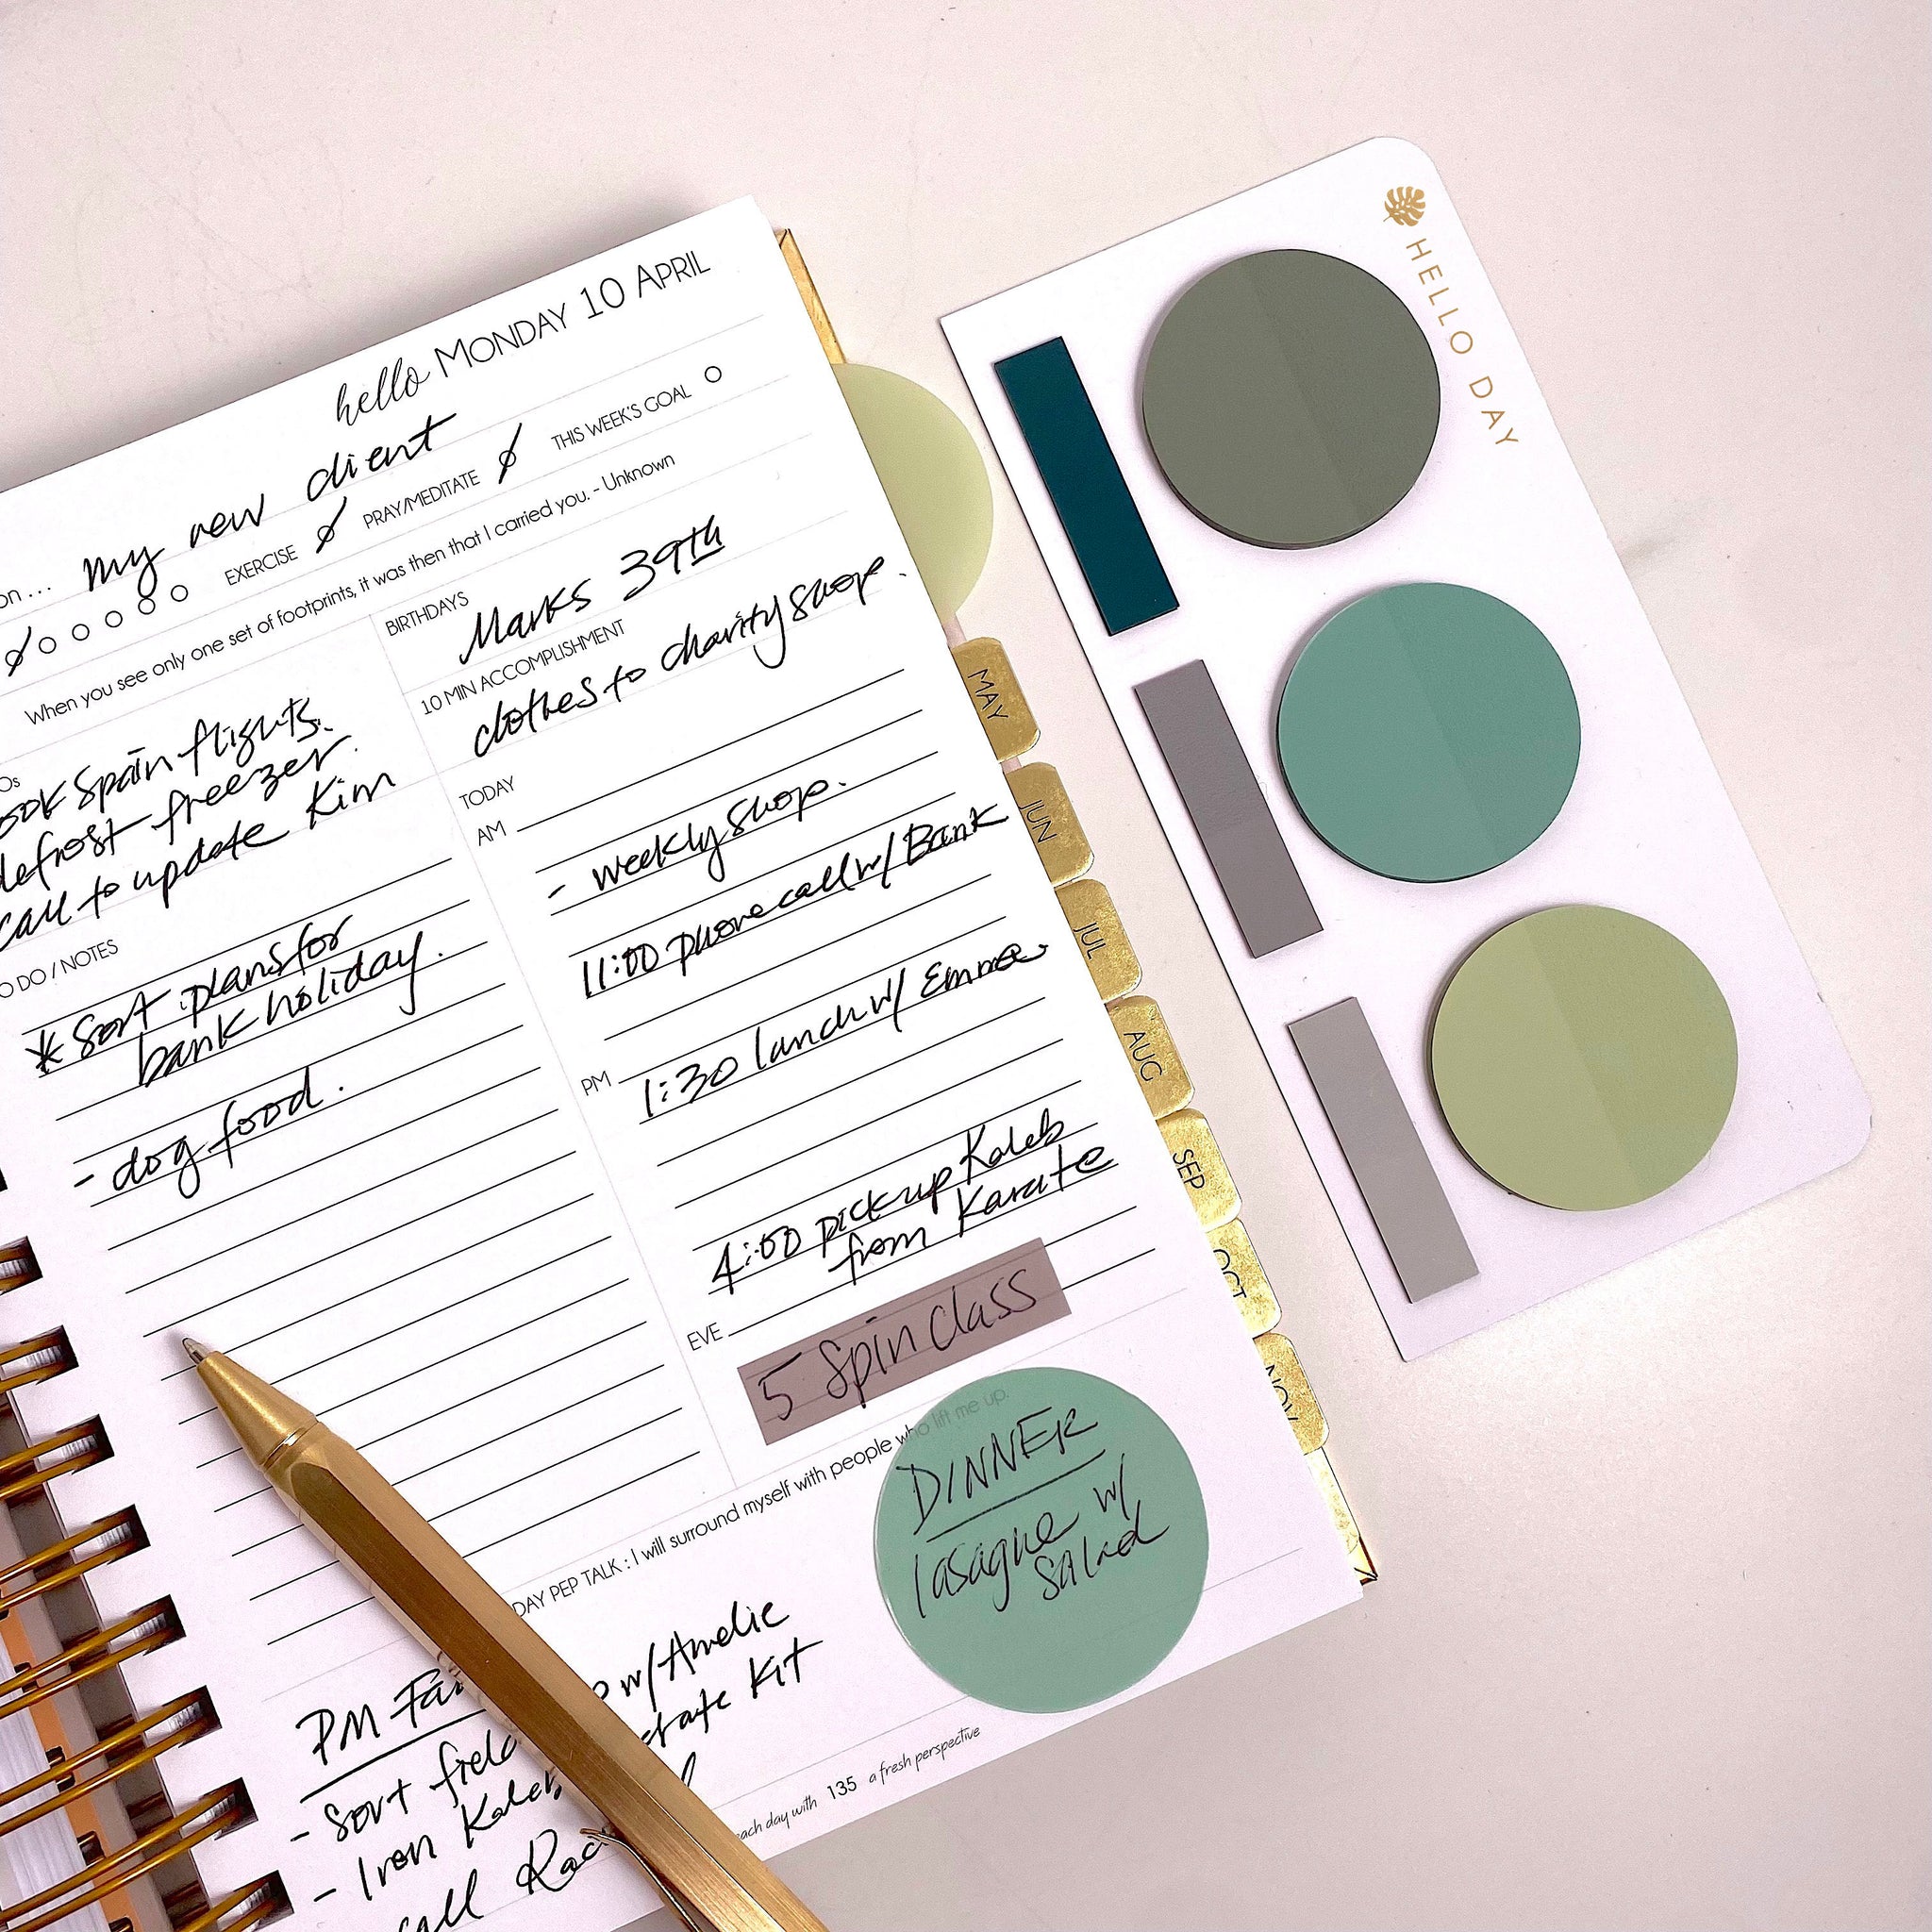 hello MONDAY 10 APRIL
my new client
EXERCISE PRAY/MEDITATE THIS WEEK'S GOAL
When you see only one set of footprints, it was then that I carried you. - Unknown
BIRTHDAYS
Marks 39th
10 MIN ACCOMPLISHMENT
clothes to charity shop.
Spain flights.
freezer.
call to update Kim
DO / NOTES
* Sort plans for
bank holiday.
- dog food.
TODAY
AM
- weekly shop.
11:00 phone call w/ Bank
PM
1:30 lunch w/ Emma
4:00 pick up Kaleb
from Karate
EVE
5 Spin Class
DAY PEP TALK : I will surround myself with people who lift me up.
DINNER
lasagne w/
Salad
PM
- Sort w/ Amelie
- Iron Kit
each day with 135 a fresh perspective
MAY
JUN
JUL
AUG
SEP
OCT
NOV
HELLO DAY